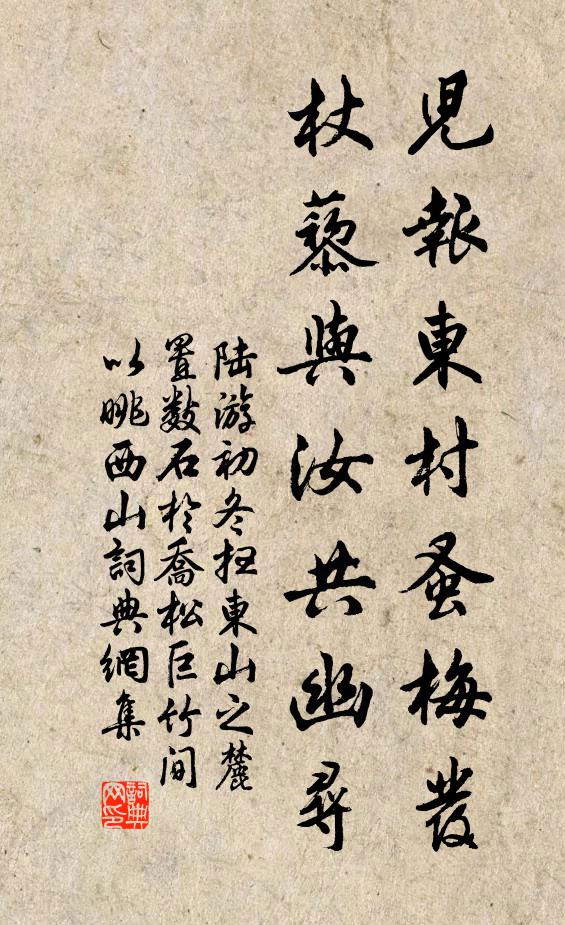 兒報東村蚤梅發
杖藜與汝共幽尋
陆游初冬抂東山之麓
置数石於喬松巨竹间
以眺西山詞典網集
詞典
网印